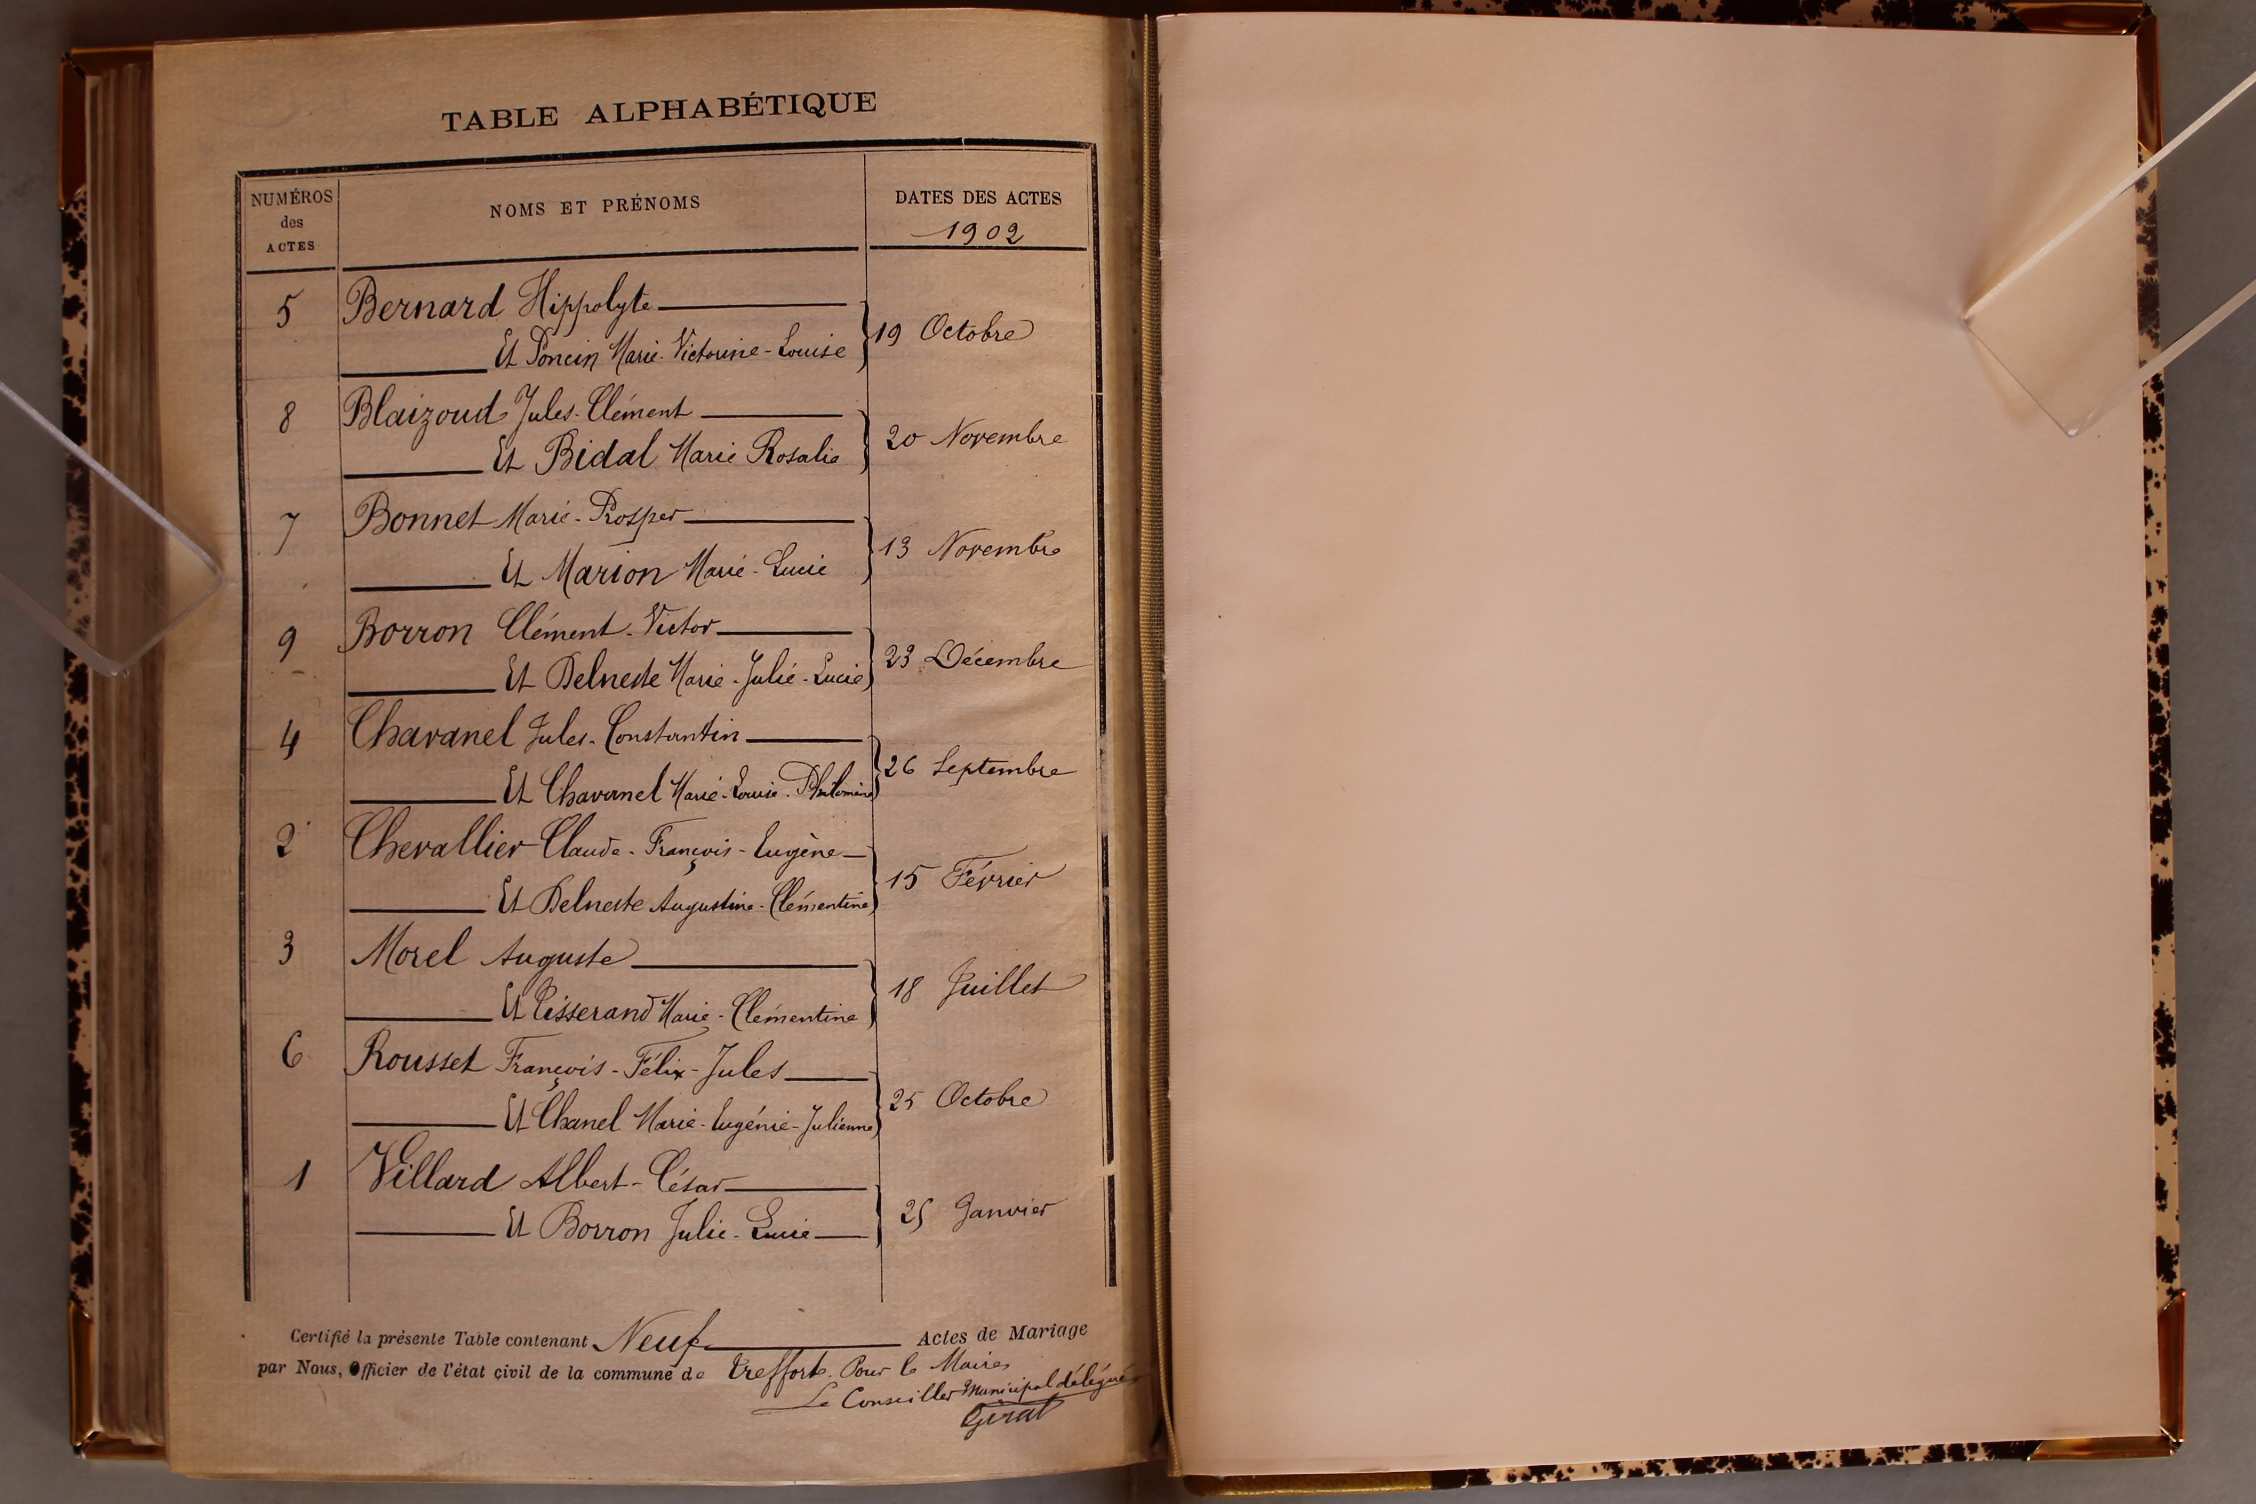 TABLE ALPHABÉTIQUE
NUMÉROS des ACTES
NOMS ET PRÉNOMS
DATES DES ACTES
1902
5 Bernard Hippolyte
Et Poncin Marie-Victorine-Louise
19 Octobre
8 Blaizoud Jules-Clément
Et Bidal Marie Rosalie
20 Novembre
7 Bonnet Marie-Prosper
Et Marion Marie-Lucie
13 Novembre
9 Borron Clément-Victor
Et Delneste Marie-Julie-Lucie
23 Décembre
4 Chavanel Jules-Constantin
Et Chavanel Marie-Louise-Philomène
26 Septembre
2 Chevallier Claude-François-Eugène
Et Delneste Augustine-Clémentine
15 Février
3 Morel Auguste
Et Tisserand Marie-Clémentine
18 Juillet
6 Rousset François-Félix-Jules
Et Chanel Marie-Eugénie-Julienne
25 Octobre
1 Villard Albert-César
Et Borron Julie-Lucie
25 Janvier
Certifié la présente Table contenant Neuf Actes de Mariage
par Nous, Officier de l'état civil de la commune de Treffort. Pour le Maire
Le Conseiller Municipal délégué